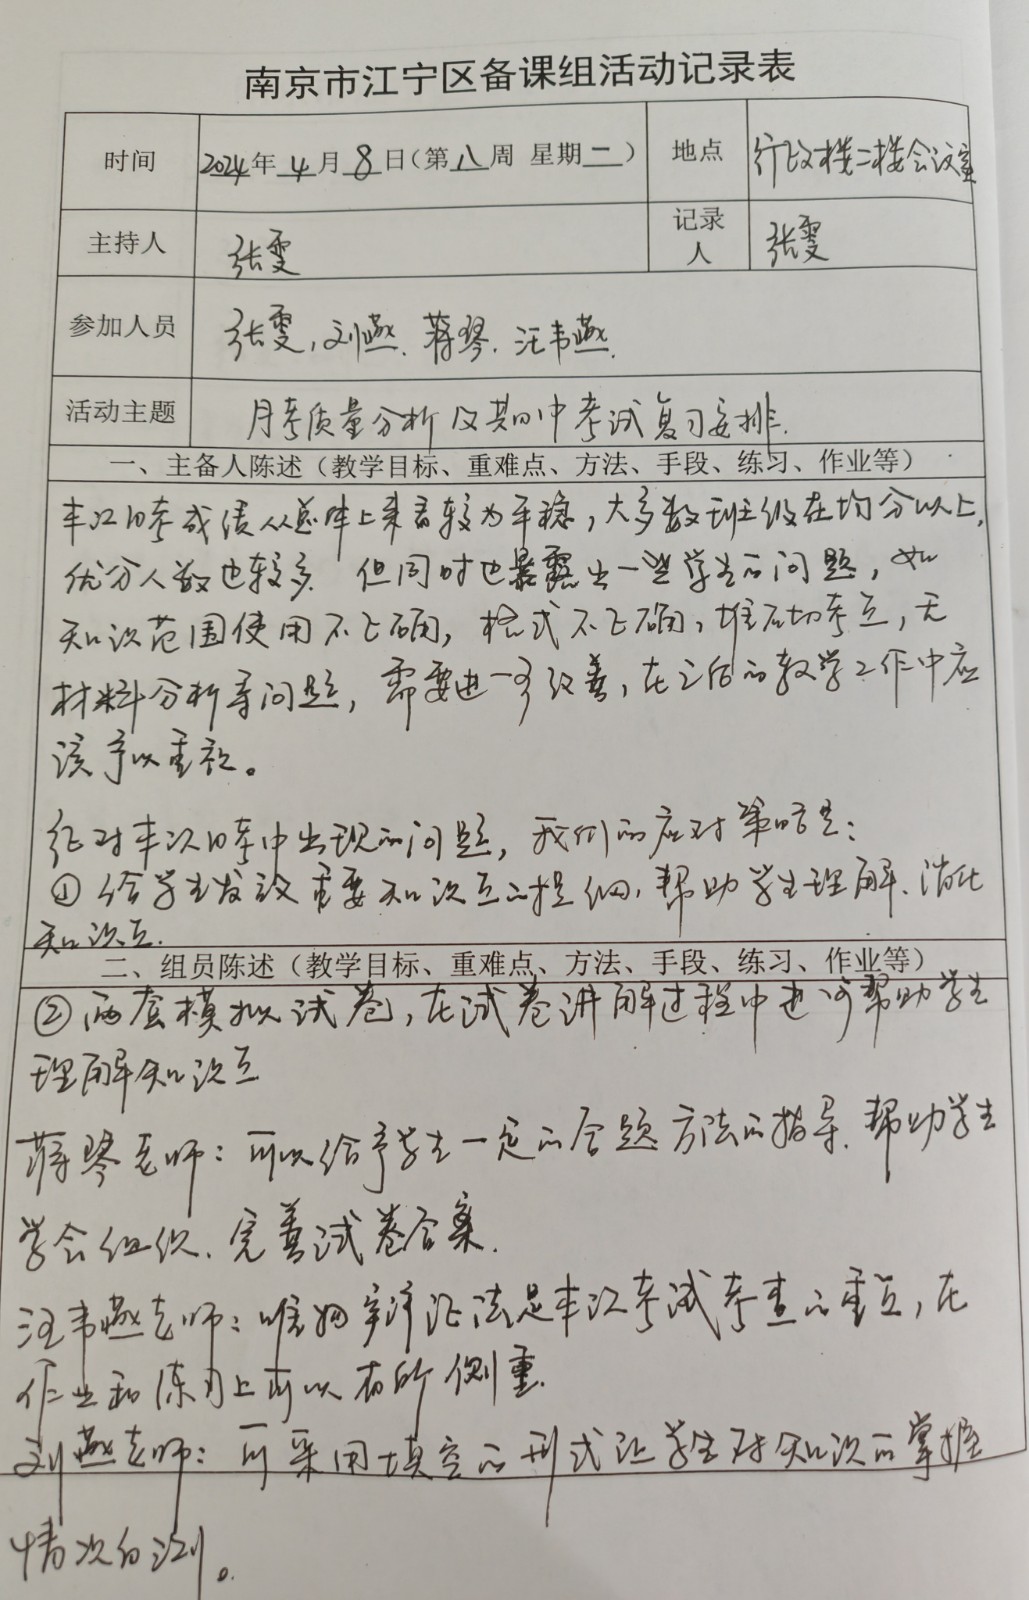 南京市江宁区备课组活动记录表
时间 2024年4月8日(第八周 星期二) 地点 行政楼二楼会议室
主持人 张雯 记录人 张雯
参加人员 张雯,刘燕、蒋琴、汪韦燕
活动主题 月考质量分析及其期中考试复习安排
一、主备人陈述(教学目标、重难点、方法、手段、练习、作业等)
本次月考成绩从总体上来看较为平稳,大多数班级在均分以上,
优分人数也较多. 但同时也暴露出一些学生的问题,如
知识范围使用不正确,格式不正确,堆砌考点,无
材料分析等问题,需要进一步改善,在之后的教学工作中应
该予以重视。
针对本次月考中出现的问题,我们的应对策略是:
① 给学生发放重要知识点的提纲,帮助学生理解、消化
知识点.
二、组员陈述(教学目标、重难点、方法、手段、练习、作业等)
② 两套模拟试卷,在试卷讲解过程中进一步帮助学生
理解知识点
蒋琴老师:可以给予学生一定的答题方法的指导、帮助学生
学会组织、完善试卷答案.
汪韦燕老师:唯物辩证法是本次考试考查的重点,在
作业和练习上可以有所侧重.
刘燕老师:可采用填空的形式让学生对知识的掌握
情况自测。